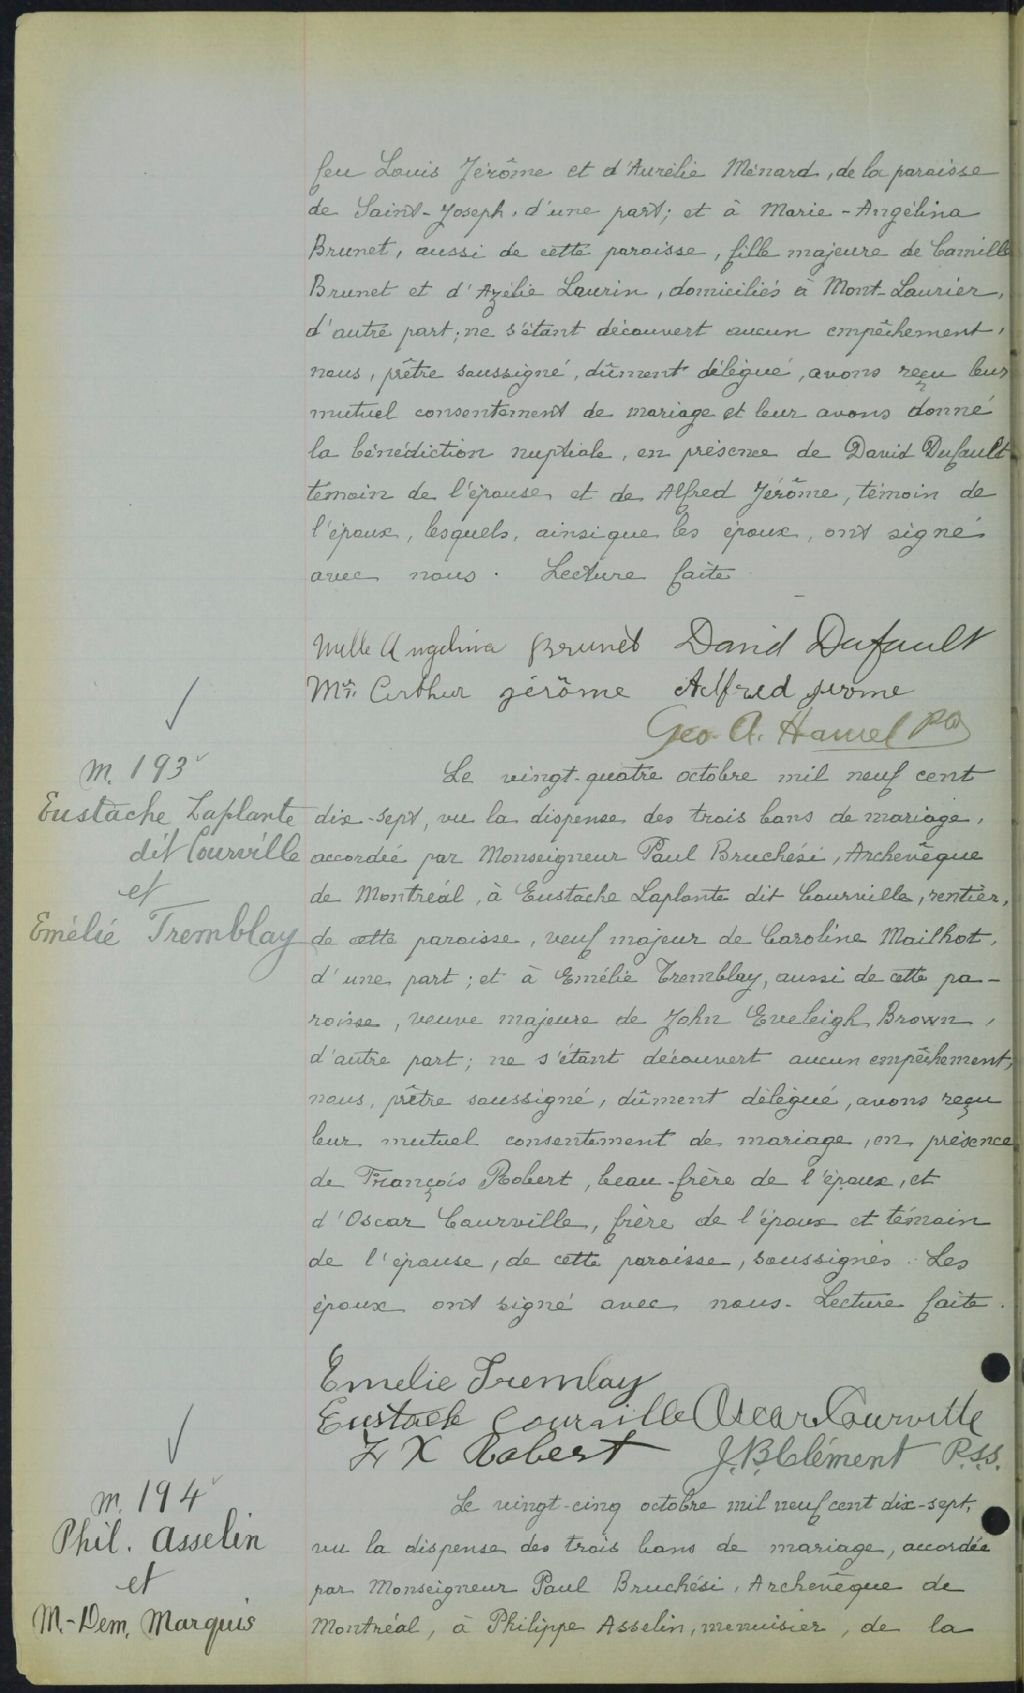 feu Louis Jérôme et d'Aurélie Ménard, de la paroisse
de Saint-Joseph, d'une part; et à Marie-Angélina
Brunet, aussi de cette paroisse, fille majeure de Camille
Brunet et d'Azélie Laurin, domiciliés à Mont-Laurier,
d'autre part; ne s'étant découvert aucun empêchement,
nous, prêtre soussigné, dûment délégué, avons reçu leur
mutuel consentement de mariage et leur avons donné
la bénédiction nuptiale, en présence de David Dufault
témoin de l'épouse et de Alfred Jérôme, témoin de
l'époux, lesquels, ainsi que les époux, ont signé
avec nous. Lecture faite
Melle Angelina Brunet David Dufault
Mr. Arthur jérôme Alfred jerome
Geo. A. Hamel
m. 193
Eustache Laplante
dit Courville
et
Emélie Tremblay
Le vingt-quatre octobre mil neuf cent
dix-sept, vu la dispense des trois bans de mariage,
accordée par Monseigneur Paul Bruchési, Archevêque
de Montréal, à Eustache Laplante dit Courville, rentier,
de cette paroisse, veuf majeur de Caroline Mailhot,
d'une part; et à Emélie Tremblay, aussi de cette pa-
roisse, veuve majeure de John Eveleigh Brown,
d'autre part; ne s'étant découvert aucun empêchement,
nous, prêtre soussigné, dûment délégué, avons reçu
leur mutuel consentement de mariage, en présence
de François Robert, beau-frère de l'époux, et
d'Oscar Courville, frère de l'époux et témoin
de l'épouse, de cette paroisse, soussignés. Les
époux ont signé avec nous. Lecture faite.
Emelie Tremblay
Eustache Courville Oscar Courville
F X Robert J.B. Clément P.S.S.
m. 194
Phil. Asselin
et
M.-Dem. Marquis
Le vingt-cinq octobre mil neuf cent dix-sept,
vu la dispense des trois bans de mariage, accordée
par Monseigneur Paul Bruchési, Archevêque de
Montréal, à Philippe Asselin, menuisier, de la